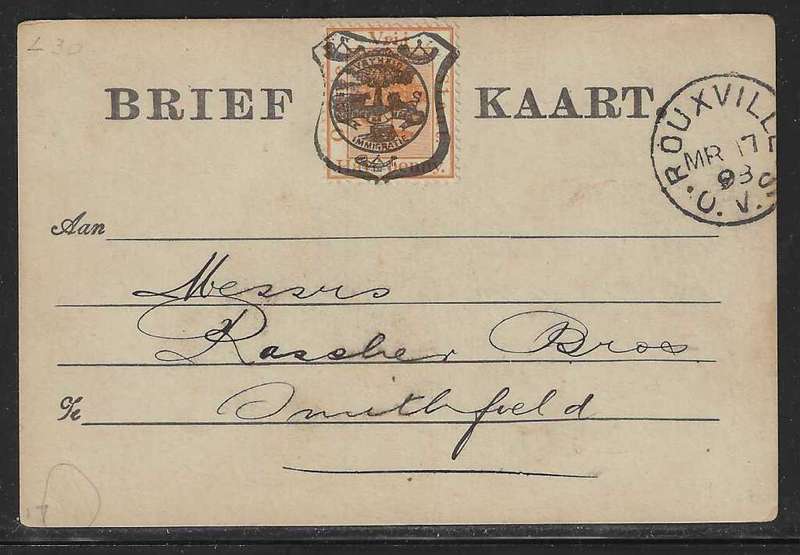 L30
BRIEF KAART.
IMMIGRATIE
Half Penny.
ROUXVILLE
MR 17
93
O.V.S.
Aan
Messrs
Rascher Bros
Te Smithfield
17